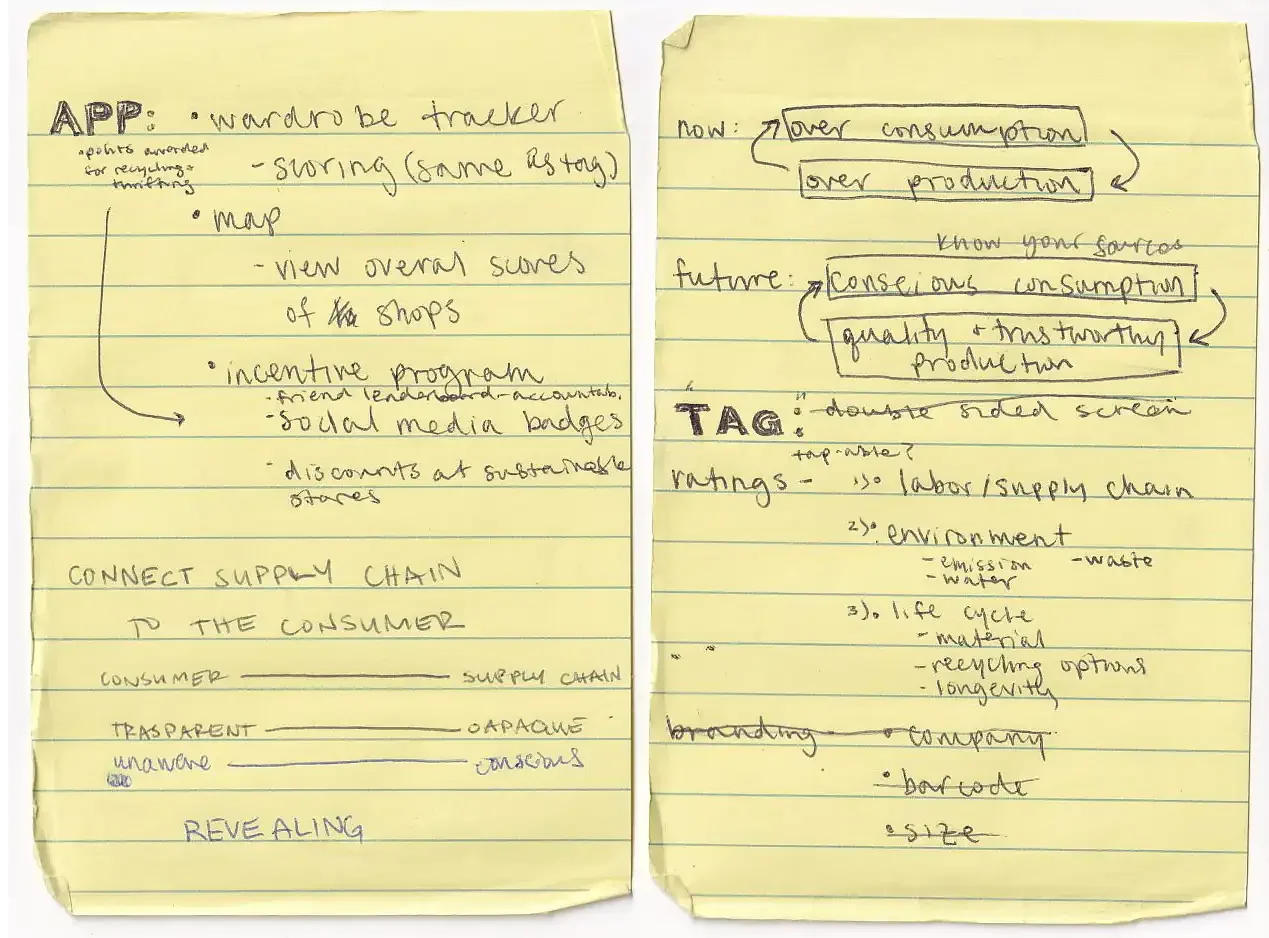 APP: • wardrobe tracker
• points awarded
for recycling +
thrifting
- scoring (same as tag)
• map
- view overal scores
of shops
• incentive program
- friend leaderboard - accountab.
- social media badges
- discounts at sustainable
stores
CONNECT SUPPLY CHAIN
TO THE CONSUMER
CONSUMER SUPPLY CHAIN
TRASPARENT OAPAQUE
unaware conscious
REVEALING
now: over consumption
over production
know your sources
future: conscious consumption
quality + trustworthy
production
"TAG": double sided screen
tap-able?
ratings - 1). labor/supply chain
2). environment
- emission - waste
- water
3). life cycle
- material
- recycling options
- longevity
branding • company
• barcode
• size